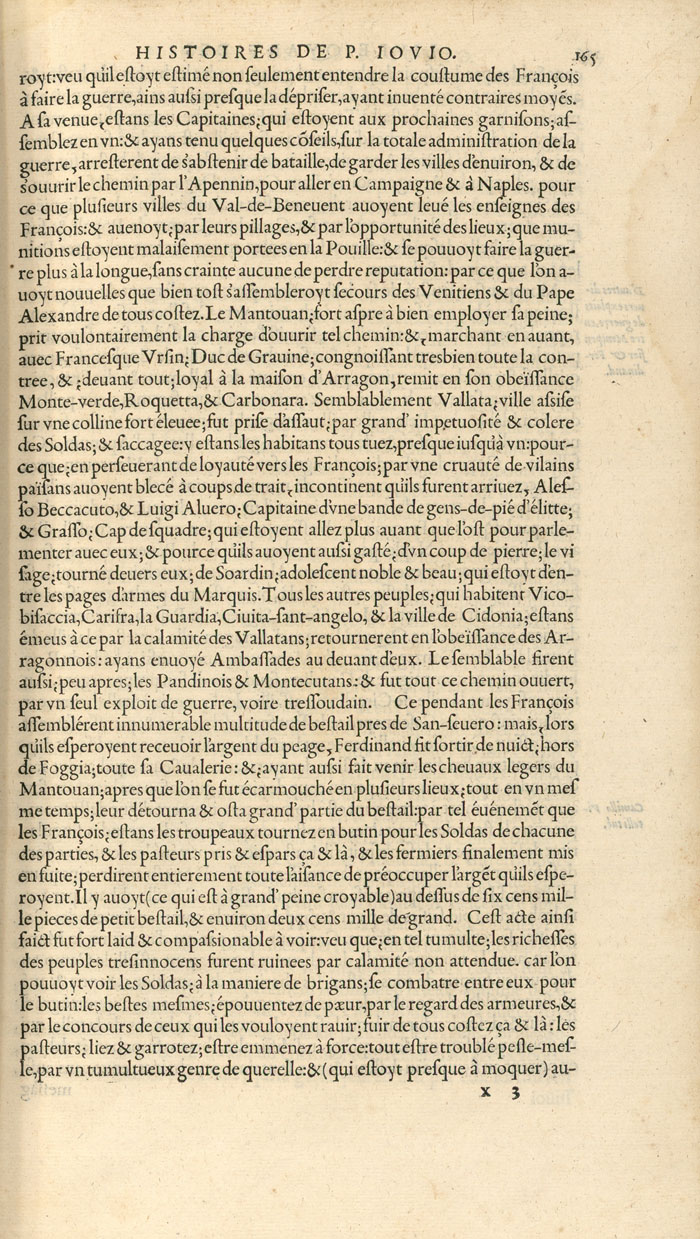 HISTOIRES DE P. IOVIO. 165
royt:veu qu'il estoyt estimé non seulement entendre la coustume des François
à faire la guerre,ains aussi presque la dépriser,ayant inuenté contraires moyẽs.
A sa venue,estans les Capitaines;qui estoyent aux prochaines garnisons;as-
semblez en vn:& ayans tenu quelques cõseils,sur la totale administration de la
guerre, arresterent de s'abstenir de bataille,de garder les villes d'enuiron, & de
s'ouurir le chemin par l'Apennin,pour aller en Campaigne & à Naples. pour
ce que plusieurs villes du Val-de-Beneuent auoyent leué les enseignes des
François:& auenoyt;par leurs pillages,& par l'opportunité des lieux;que mu-
nitions estoyent malaisement portees en la Pouille:& se pouuoyt faire la guer-
re plus à la longue,sans crainte aucune de perdre reputation: par ce que l'on a-
uoyt nouuelles que bien tost s'assembleroyt secours des Venitiens & du Pape
Alexandre de tous costez. Le Mantouan;fort aspre à bien employer sa peine;
prit voulontairement la charge d'ouurir tel chemin:&,marchant en auant,
auec Francesque Vrsin;Duc de Grauine;congnoissant tresbien toute la con-
tree, & ;deuant tout;loyal à la maison d'Arragon,remit en son obeïssance
Monte-verde,Roquetta,& Carbonara. Semblablement Vallata;ville assise
sur vne colline fort éleuee;fut prise d'assaut;par grand' impetuosité & colere
des Soldas;& saccagee:y estans les habitans tous tuez,presque iusqu'à vn:pour-
ce que;en perseuerant de loyauté vers les François;par vne cruauté de vilains
païsans auoyent blecé à coups de trait,incontinent qu'ils furent arriuez, Ales-
so Beccacuto,& Luigi Aluero;Capitaine d'vne bande de gens-de-pié d'élitte;
& Grasso;Cap de squadre;qui estoyent allez plus auant que l'ost pour parle-
menter auec eux;& pource qu'ils auoyent aussi gasté;d'vn coup de pierre;le vi
sage;tourné deuers eux;de Soardin;adolescent noble & beau;qui estoyt d'en-
tre les pages d'armes du Marquis. Tous les autres peuples;qui habitent Vico-
bisaccia,Carifra,la Guardia,Ciuita-sant-angelo, & la ville de Cidonia;estans
émeus à ce par la calamité des Vallatans;retournerent en l'obeïssance des Ar-
ragonnois: ayans enuoyé Ambassades au deuant d'eux. Le semblable firent
aussi;peu apres;les Pandinois & Montecutans:& fut tout ce chemin ouuert,
par vn seul exploit de guerre, voire tressoudain. Ce pendant les François
assemblérent innumerable multitude de bestail pres de San-seuero: mais,lors
qu'ils esperoyent receuoir l'argent du peage, Ferdinand fit sortir,de nuict;hors
de Foggia;toute sa Caualerie: &;ayant aussi fait venir les cheuaux legers du
Mantouan;apres que l'on se fut écarmouché en plusieurs lieux;tout en vn mes
me temps;leur détourna & osta grand' partie du bestail:par tel éuénemẽt que
les François;estans les troupeaux tournez en butin pour les Soldas de chacune
des parties, & les pasteurs pris & espars ça & là, & les fermiers finalement mis
en fuite;perdirent entierement toute l'aisance de préoccuper l'argẽt qu'ils espe-
royent. Il y auoyt(ce qui est à grand' peine croyable)au dessus de six cens mil-
le pieces de petit bestail,& enuiron deux cens mille de grand. Cest acte ainsi
faict fut fort laid & compassionable à voir:veu que;en tel tumulte;les richesses
des peuples tresinnocens furent ruinees par calamité non attendue. car l'on
pouuoyt voir les Soldas;à la maniere de brigans;se combatre entre eux pour
le butin:les bestes mesmes;épouuentez de pæur,par le regard des armeures,&
par le concours de ceux qui les vouloyent rauir;fuir de tous costez ça & là: les
pasteurs;liez & garrotez;estre emmenez à force:tout estre troublé pesle-mes-
le,par vn tumultueux genre de querelle:&(qui estoyt presque à moquer) au-
x 3